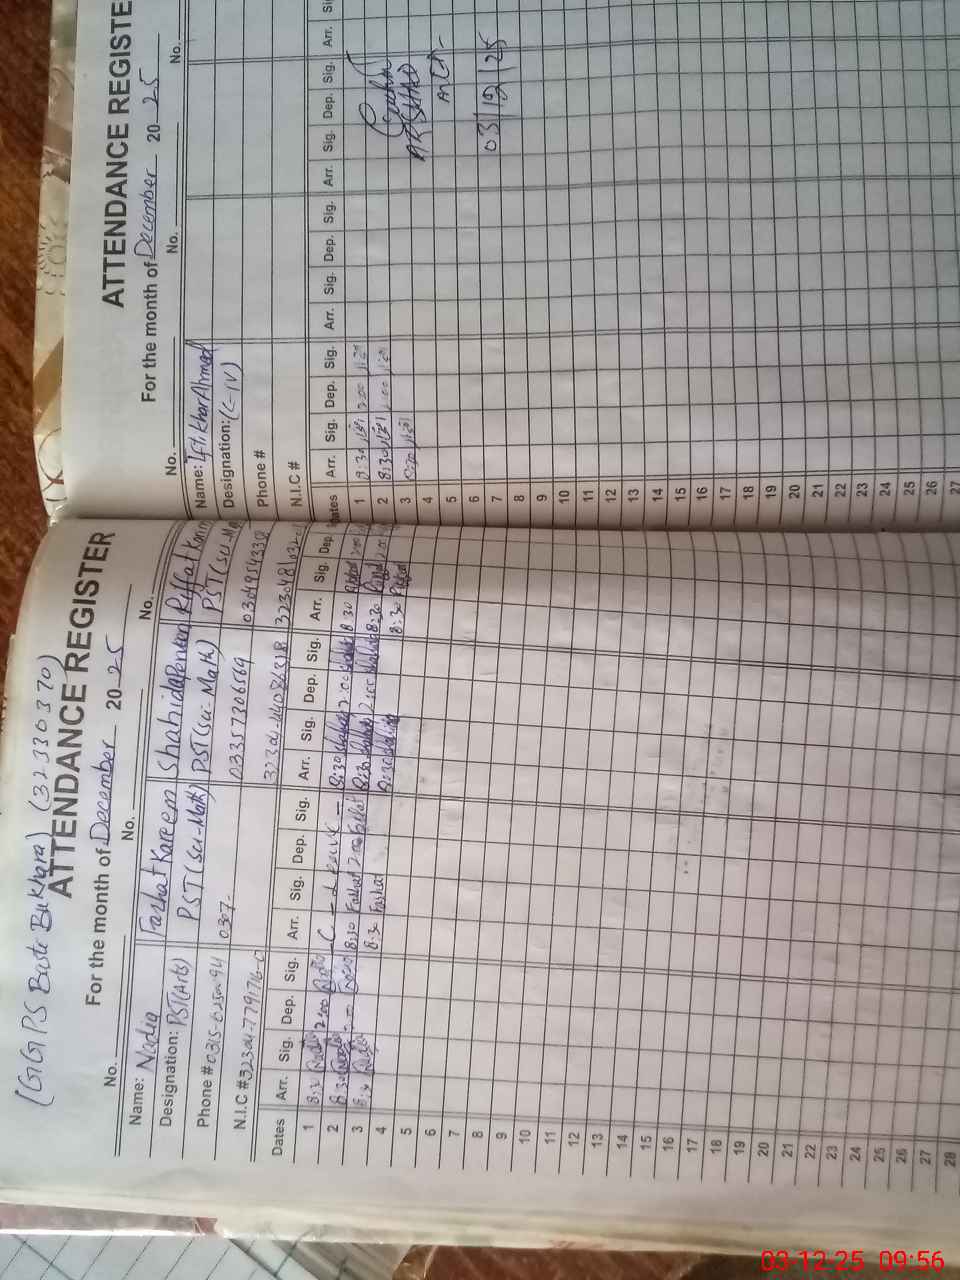 (GGPS Basti Bukhara) (32330370)
ATTENDANCE REGISTER
For the month of December 2025
No. No. No.
Name: Nadia Farhat Kareem Shahida Perveen Riffat Karim
Designation: PST(Arts) PST(Sci-Math) PST(Sci-Math) PST(Sci-Ma
Phone # 0307- 03357306569
N.I.C #
Dates Arr. Sig. Dep. Sig. Arr. Sig. Dep. Sig. Arr. Sig. Dep. Sig. Arr. Sig. Dep.
1 8:30 Nadia 2:00 Nadia C - Leave - 8:30 Shahida 2:00 Shahida 8:30 Riffat 2:00
2 8:30 Nadia 2:00 Nadia 8:30 Farhat 2:00 Farhat 8:30 Shahida 2:00 Shahida 8:30 Riffat 2:00
3 8:30 Nadia 8:30 Farhat 8:30 Shahida 8:30 Riffat
4
5
6
7
8
9
10
11
12
13
14
15
16
17
18
19
20
21
22
23
24
25
26
27
28
ATTENDANCE REGISTE
For the month of December 2025
No. No. No.
Name: Iftikhar Ahmad
Designation: (C-IV)
Phone #
N.I.C #
Dates Arr. Sig. Dep. Sig. Arr. Sig. Dep. Sig. Arr. Sig. Dep. Sig. Arr. Si
1 8:30 2:00
2 8:30 2:00
3 8:30
4
5
6
7
8
9
10
11
12
13
14
15
16
17
18
19
20
21
22
23
24
25
26
27
03/12/25
03-12-25 09:56